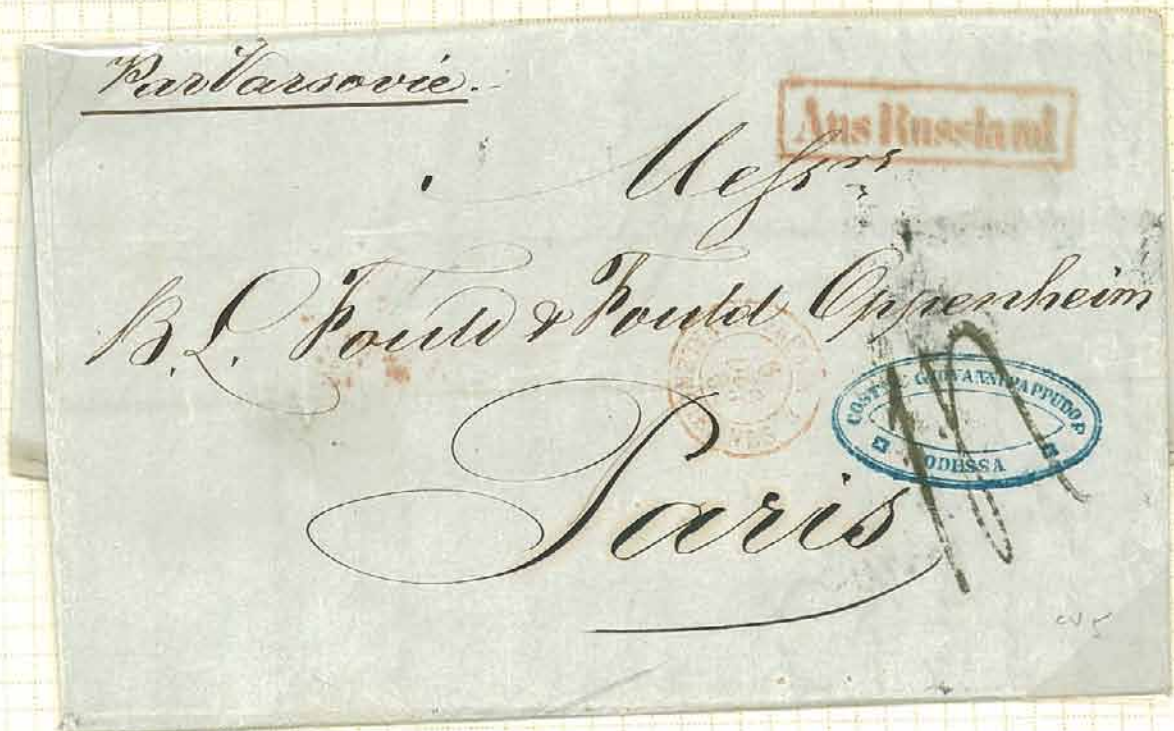 Par Varsovie.
Aus Russland
Messrs
B. L. Fould & Fould Oppenheim
COSTI GIOVANNI PAPPUDOF
ODESSA
Paris